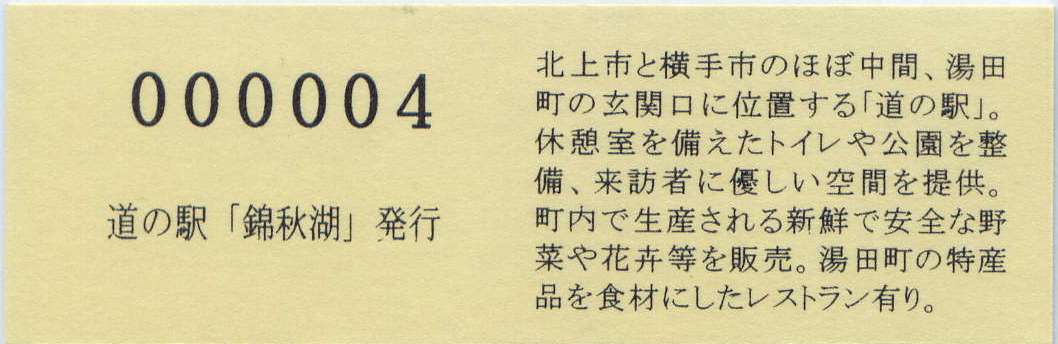 000004
道の駅「錦秋湖」発行
北上市と横手市のほぼ中間、湯田
町の玄関口に位置する「道の駅」。
休憩室を備えたトイレや公園を整
備、来訪者に優しい空間を提供。
町内で生産される新鮮で安全な野
菜や花卉等を販売。湯田町の特産
品を食材にしたレストラン有り。